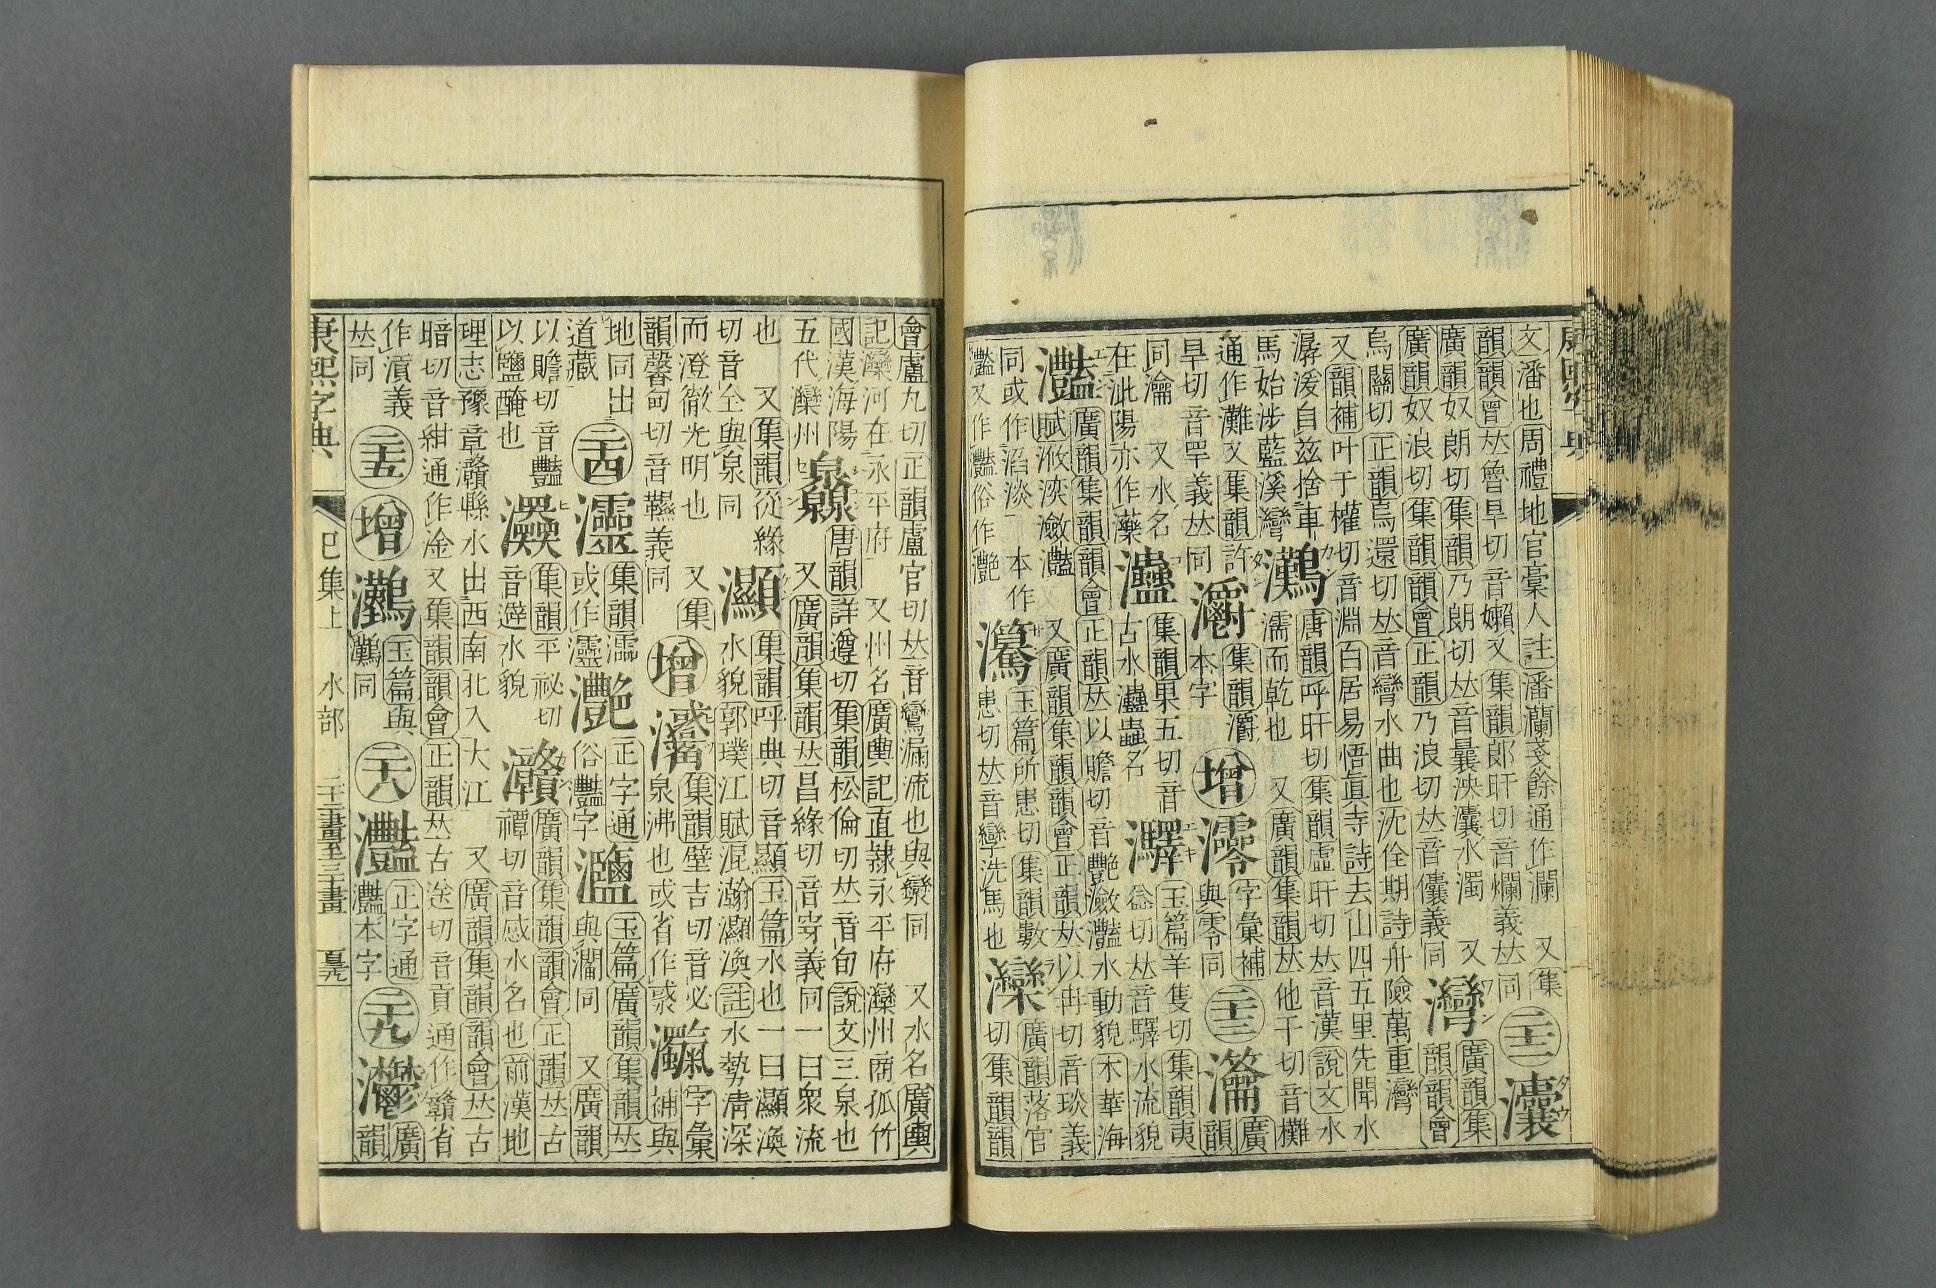 文潘也周禮地官槀人註潘灡戔餘通作灡 又集
韻韻會𠀤魯旱切音嬾又集韻郞旰切音爛義𠀤同
二十二
灢
廣韻奴朗切集韻乃朗切𠀤音曩泱灢水濁 又
廣韻奴浪切集韻韻會正韻乃浪切𠀤音儾義同
灣
廣韻集韻韻會
烏關切正韻烏還切𠀤音彎水曲也沈佺期詩舟險萬重灣
又韻補叶于權切音淵白居易悟眞寺詩去山四五里先聞水
潺湲自兹捨車馬始涉藍溪灣
灘
唐韻呼旰切集韻虛旰切𠀤音漢說文水
濡而乾也 又廣韻集韻𠀤他干切音攤
通作灘又集韻許旱切音罕義𠀤同
灂
集韻灂本字
增
澪
字彙補與零同
二十三
灥
廣韻
同瀹 又水名在沘陽亦作藥
蠱
集韻果五切音古水蠱蟲名
驛
玉篇羊隻切集韻夷益切𠀤音驛水流貌
灩
廣韻集韻韻會正韻𠀤以贍切音豔瀲灩水動貌木華海
賦浟湙瀲灩 又廣韻集韻韻會正韻𠀤以冉切音琰義
同或作滔淡 本作灩又作豔俗作艷
玉篇所患切集韻數患切𠀤音孿洗馬也
灤
廣韻落官切集韻韻
會盧丸切正韻盧官切𠀤音鸞漏流也與灓同 又水名廣輿
記灤河在永平府 又州名廣輿記直隷永平府灤州商孤竹
國漢海陽五代灤州
灥
唐韻詳遵切集韻松倫切𠀤音旬說文三泉也
又廣韻集韻𠀤昌緣切音穿義同一曰衆流
也 又集韻從緣切音全與泉同
灦
集韻呼典切音顯玉篇水也一曰灦渙
水貌郭璞江賦混瀚灦渙註水勢淸深
而澄徹光明也 又集韻馨甸切音韅義同
增
集韻壁吉切音必
泉沸也或省作㵥
字彙補與
地同出道藏
二十四
靈
集韻濡或作靈
灔
正字通俗灩字
鹽
玉篇廣韻集韻𠀤
以贍切音豔與灠同 又廣韻以鹽醃也
集韻平祕切音避水貌
灨
廣韻集韻韻會正韻𠀤古
禫切音感水名也前漢地
理志豫章灨縣水出西南北入大江 又廣韻集韻韻會𠀤古
暗切音紺通作淦又集韻韻會正韻𠀤古送切音貢通作贛省
作瀆義𠀤同
二十五
增
玉篇與灘同
二十八
灩
正字通灩本字
二十九
灪
廣韻
康熙字典
巳集上 水部